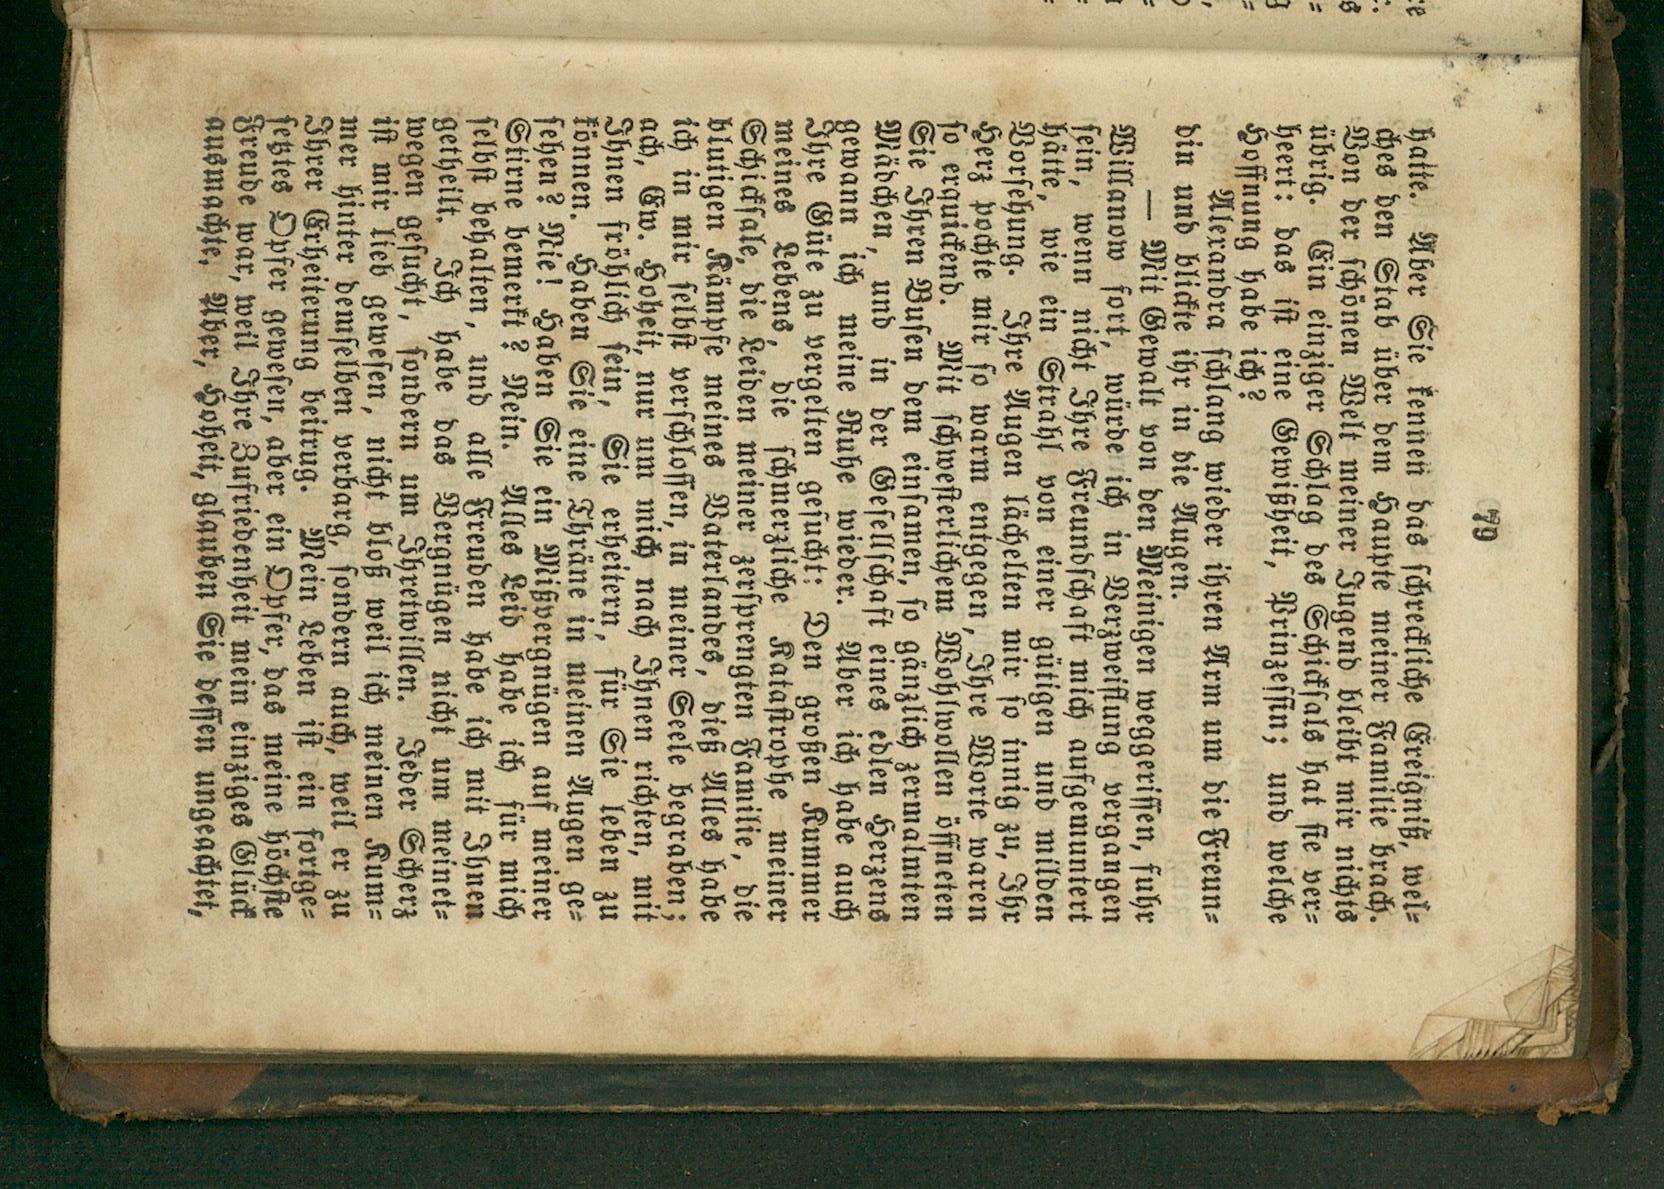 79
hatte. Aber Sie kennen das schreckliche Ereigniß, wel=
ches den Stab über dem Haupte meiner Familie brach.
Von der schönen Welt meiner Jugend bleibt mir nichts
übrig. Ein einziger Schlag des Schicksals hat sie ver=
heert: das ist eine Gewißheit, Prinzessin; und welche
Hoffnung habe ich?
Alexandra schlang wieder ihren Arm um die Freun=
din und blickte ihr in die Augen.
— Mit Gewalt von den Meinigen weggerissen, fuhr
Willanow fort, würde ich in Verzweiflung vergangen
sein, wenn nicht Ihre Freundschaft mich aufgemuntert
hätte, wie ein Strahl von einer gütigen und milden
Vorsehung. Ihre Augen lächelten mir so innig zu, Ihr
Herz pochte mir so warm entgegen, Ihre Worte waren
so erquickend. Mit schwesterlichem Wohlwollen öffneten
Sie Ihren Busen dem einsamen, so gänzlich zermalmten
Mädchen, und in der Gesellschaft eines edlen Herzens
gewann ich meine Ruhe wieder. Aber ich habe auch
Ihre Güte zu vergelten gesucht: Den großen Kummer
meines Lebens, die schmerzliche Katastrophe meiner
Schicksale, die Leiden meiner zersprengten Familie, die
blutigen Kämpfe meines Vaterlandes, dieß Alles habe
ich in mir selbst verschlossen, in meiner Seele begraben;
ach, Ew. Hoheit, nur um mich nach Ihnen richten, mit
Ihnen fröhlich sein, Sie erheitern, für Sie leben zu
können. Haben Sie eine Thräne in meinen Augen ge=
sehen? Nie! Haben Sie ein Mißvergnügen auf meiner
Stirne bemerkt? Nein. Alles Leid habe ich für mich
selbst behalten, und alle Freuden habe ich mit Ihnen
getheilt. Ich habe das Vergnügen nicht um meinet=
wegen gesucht, sondern um Ihretwillen. Jeder Scherz
ist mir lieb gewesen, nicht bloß weil ich meinen Kum=
mer hinter demselben verbarg, sondern auch, weil er zu
Ihrer Erheiterung beitrug. Mein Leben ist ein fortge=
setztes Opfer gewesen, aber ein Opfer, das meine höchste
Freude war, weil Ihre Zufriedenheit mein einziges Glück
ausmachte. Aber, Hoheit, glauben Sie dessen ungeachtet,